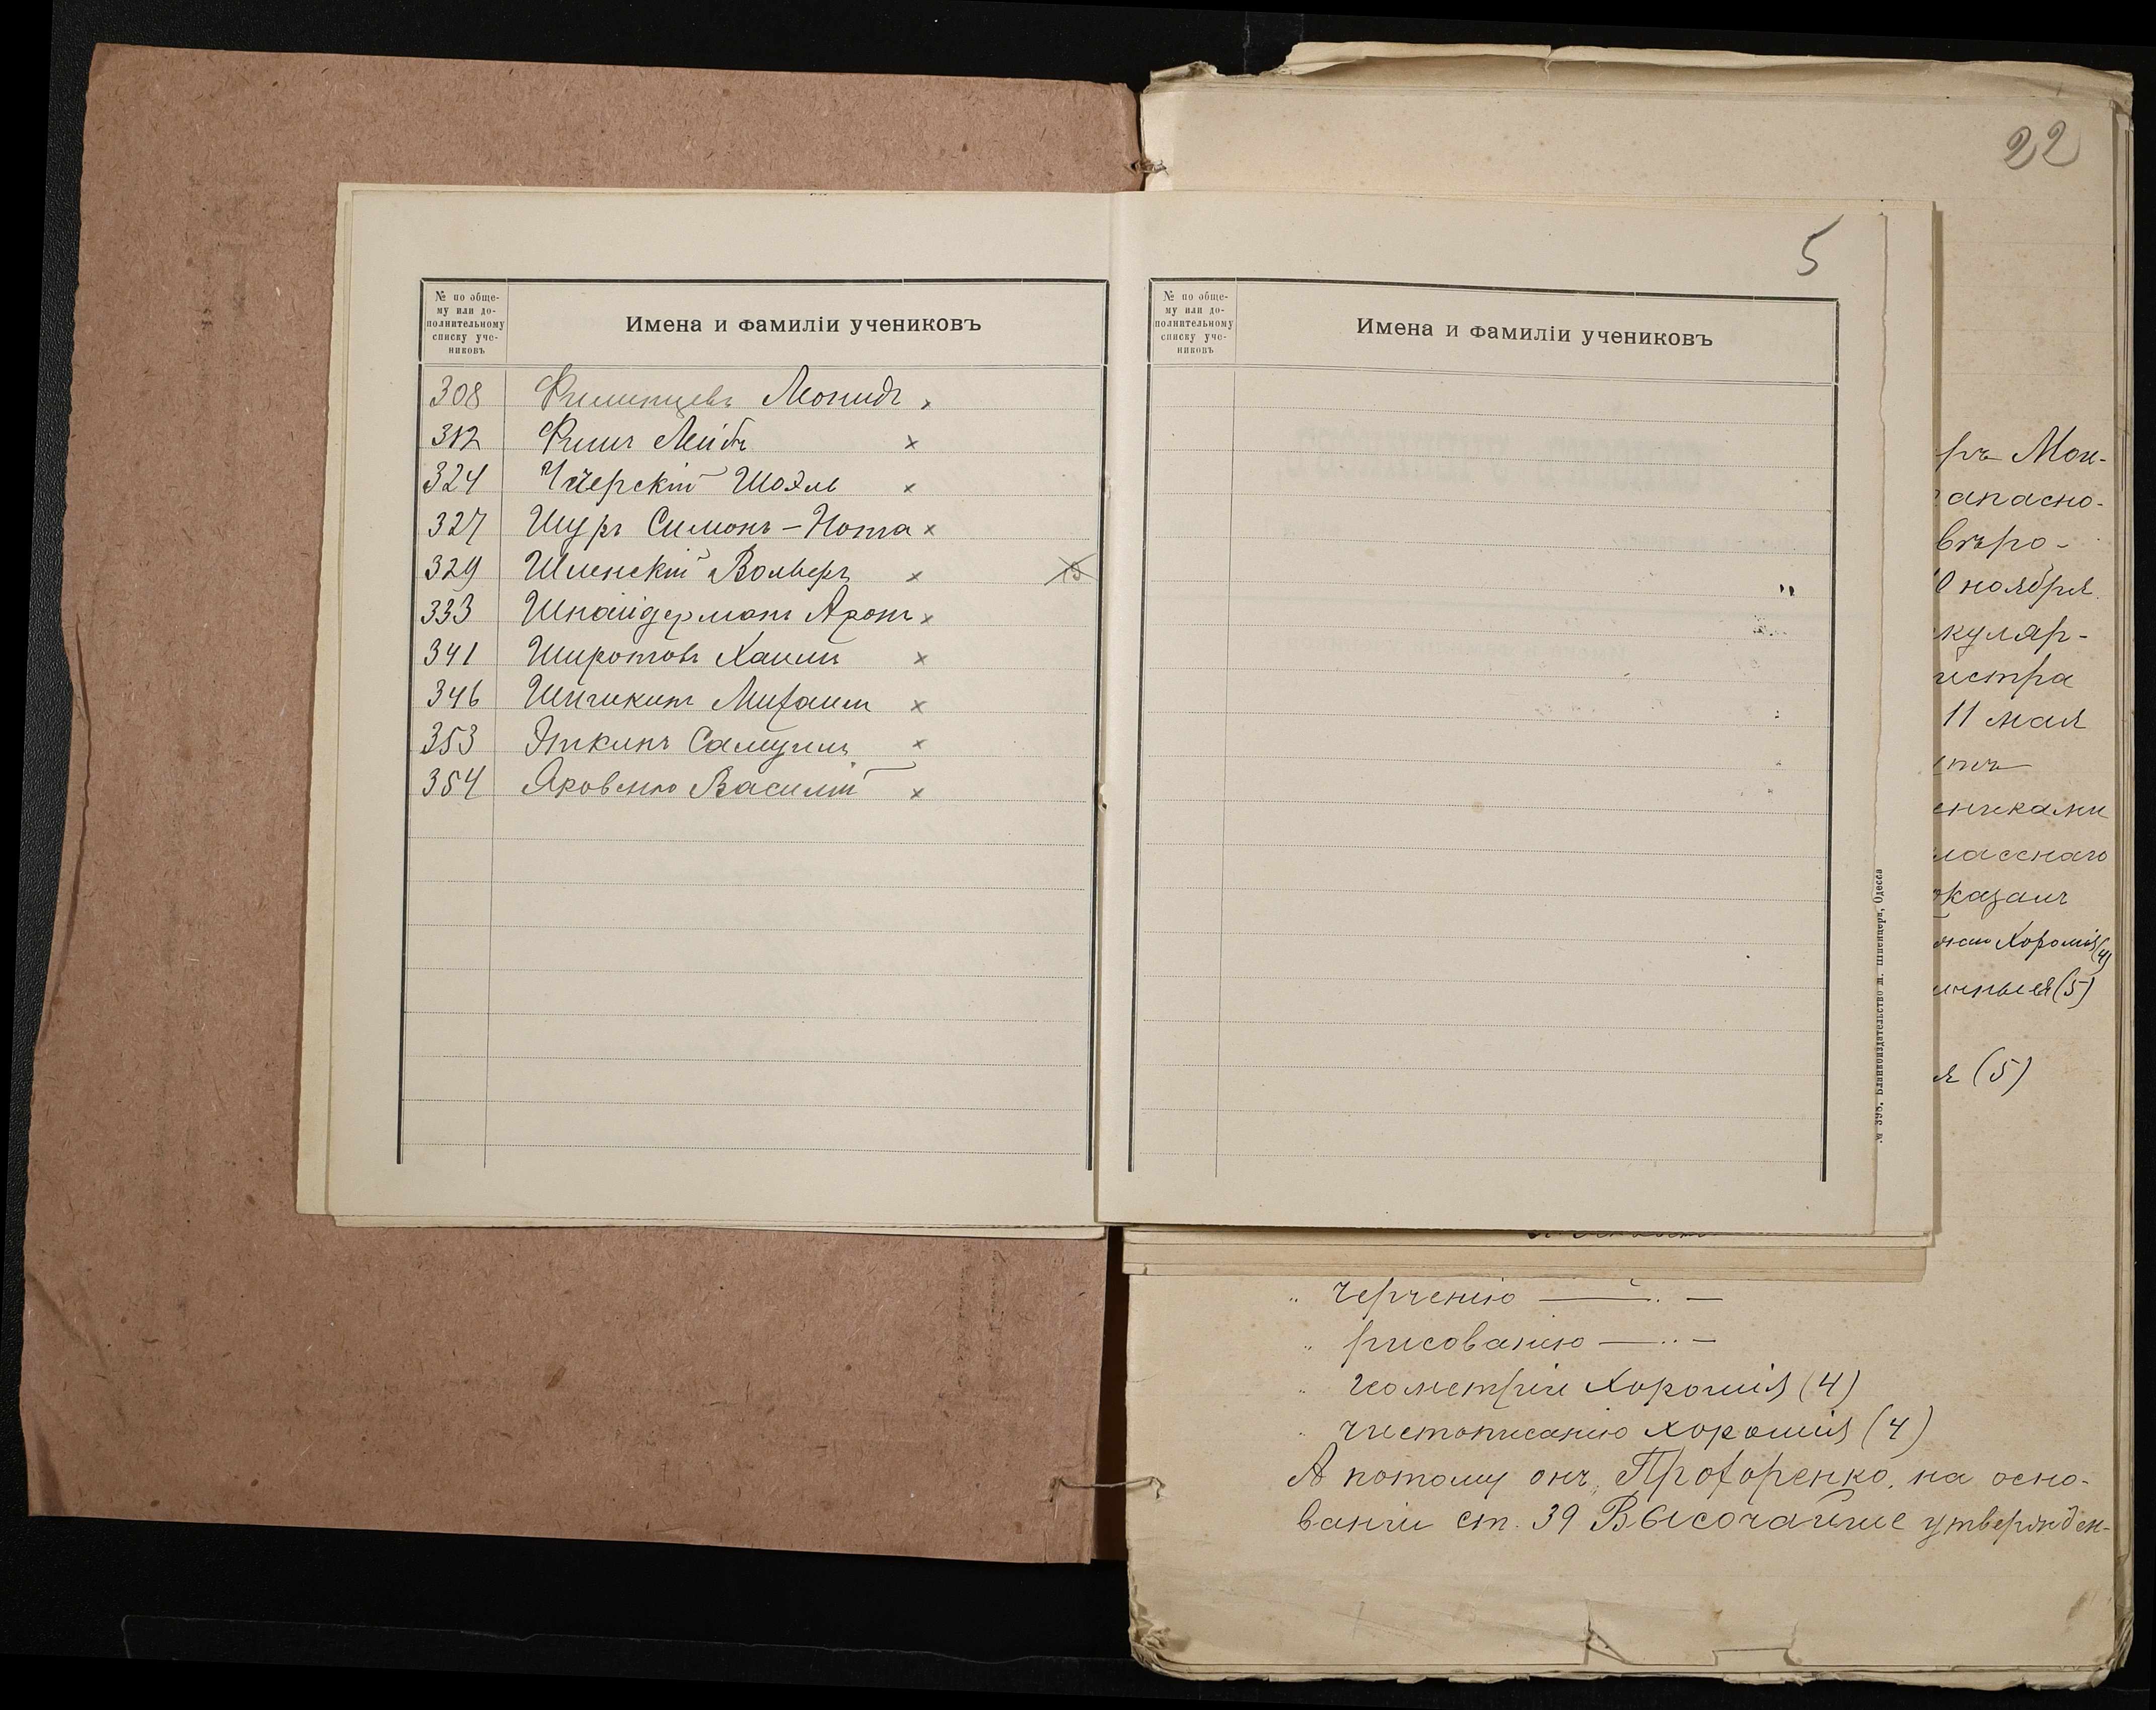 22
5
№ по обще-
му или до-
полнительному
списку уче-
никовъ
Имена и фамиліи учениковъ
308 Филипцевъ Леонидъ ×
312 Финъ Лейбъ ×
324 Чčерскій Шоэль ×
327 Шуръ Симонъ-Нота ×
329 Шленскій Вольверъ ×
333 Шнайдерманъ Аронъ ×
341 Широтовъ Хаимъ ×
346 Шпичкинъ Михаилъ ×
353 Эткинъ Самуилъ ×
354 Яровенко Василій ×
№ по обще-
му или до-
полнительному
списку уче-
никовъ
Имена и фамиліи учениковъ
№ 398. Бланкоиздательство Шпенцера, Одесса
ръ Мон-
апасно-
вѣро-
0 ноября
куляр-
истра
11 мая
ениками
лассного
казалъ
Хорошія (4)
(5)
я (5)
„ черченію — „ —
„ рисованію — „ —
„ геометріи хорошія (4)
„ чистописанію хорошія (4)
А потому онъ, Прохоренко, на осно-
ваніи ст. 39 Высочайше утвержден-